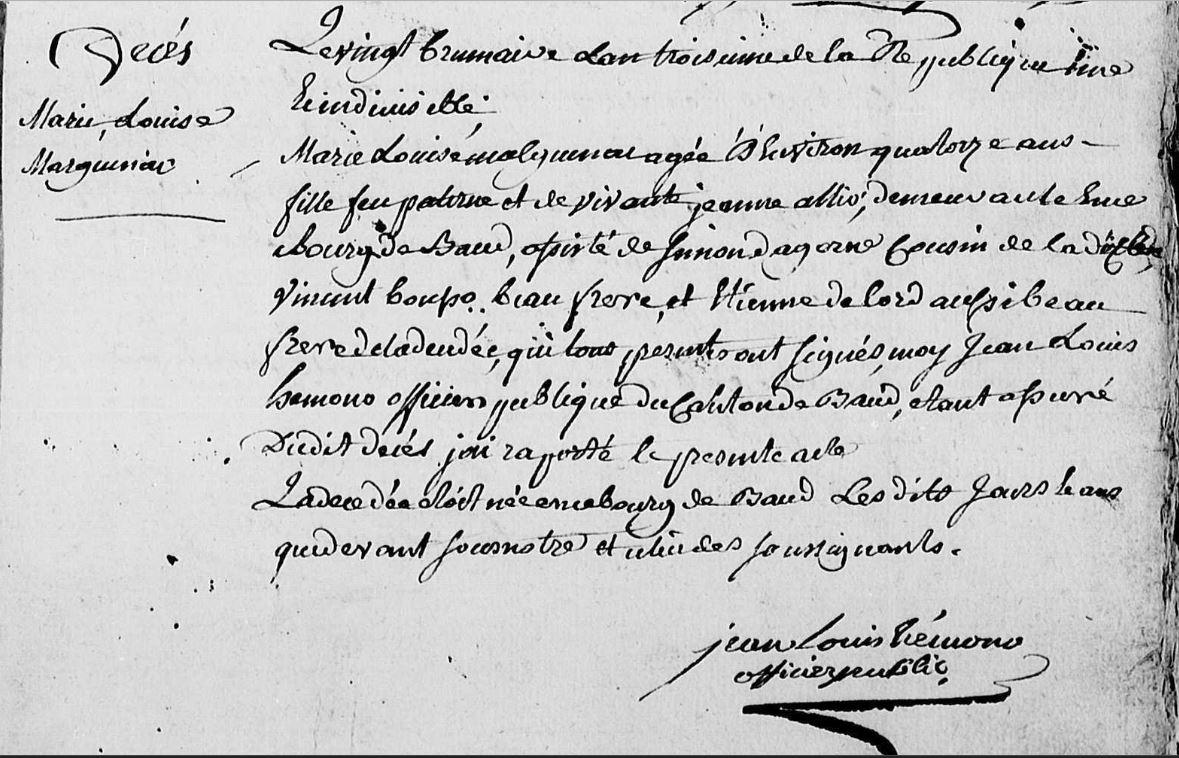 Decés
Marie Louise
Marguiniac
Le vingt brumaire L'an troisieme de la Republique une
Et indivisible
Marie Louise agée D'Environ quatorze ans
fille feu paterne et de vivante jeanne allio, demeurante En ce
bourg de Baud, assisté de Simon dagorne Cousin de la
Vincent beau frere, et Etienne de lord aussi beau
frere de la décédée, qui tous presents ont signés, moy Jean Louis
hemono officier publique du Canton de Baud, etant assuré
Dudit decés j'ai raporté le present acte
La decedée etoit née en ce bourg de Baud Les dits Jours et ans
que devant sous notre et des soussignants.
jean Louis hémono
officier public